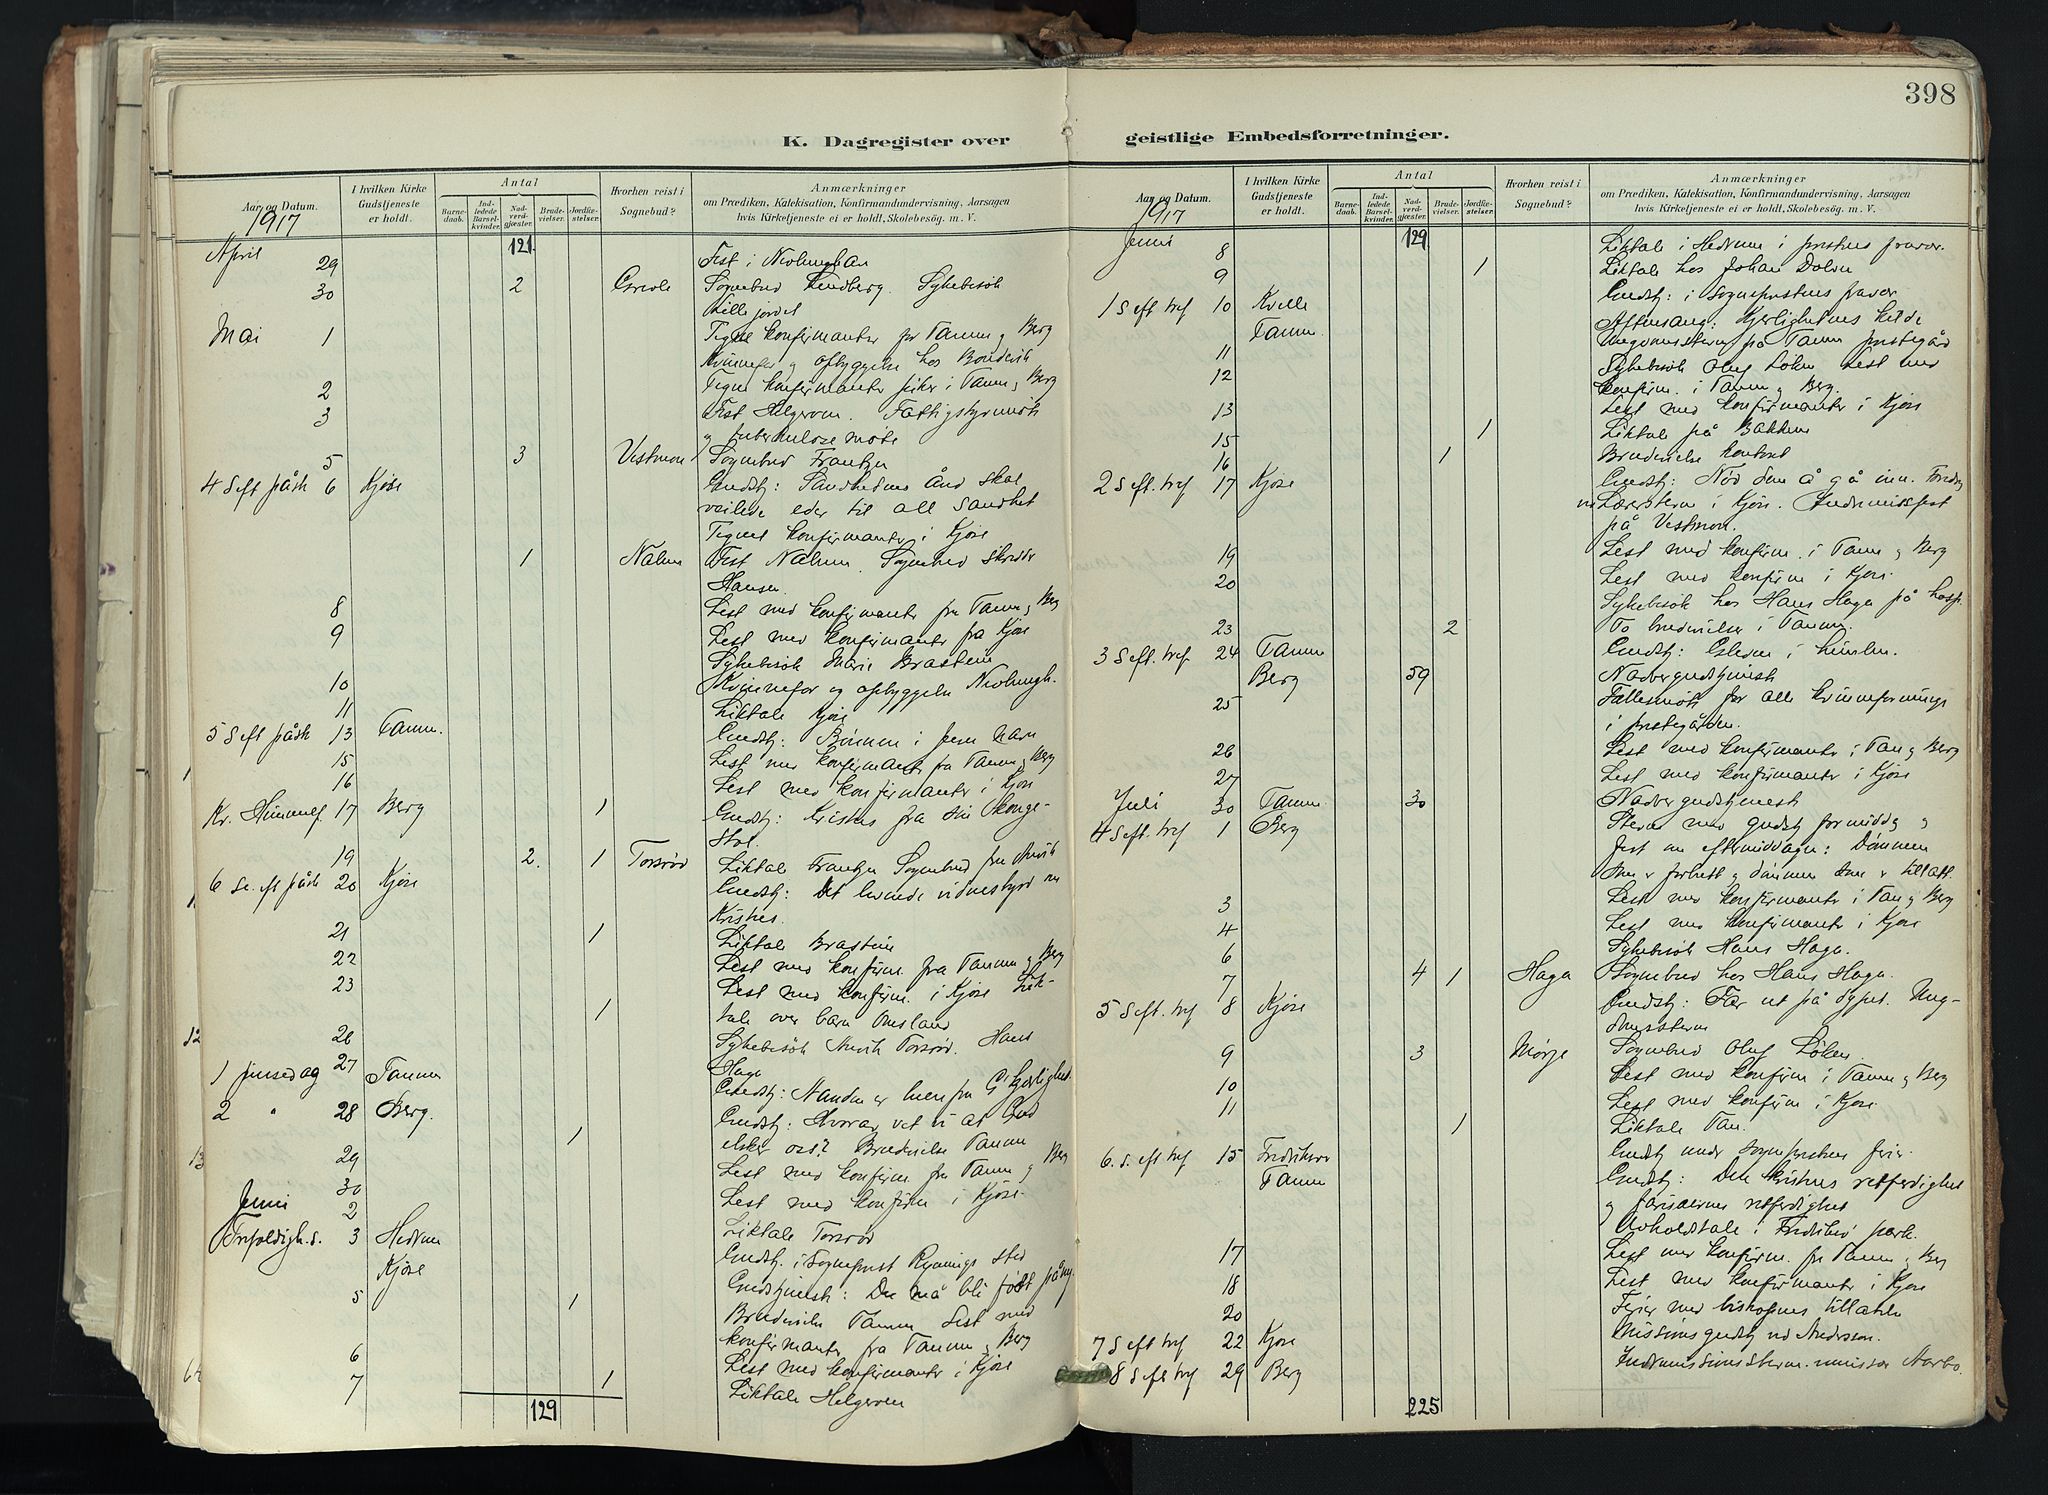 398
K. Dagregister over
geistlige Embedsforretninger.
Aar og Datum.
I hvilken Kirke Gudstjeneste er holdt.
Antal
Barnedaab.
Indledede Barselkvinder.
Nadverdgjæster.
Brudevielser.
Jordfæstelser.
Hvorhen reist i Sognebud?
Anmærkninger
om Prædiken, Katekisation, Konfirmandundervisning, Aarsagen
hvis Kirketjeneste ei er holdt, Skolebesøg. m. V.
1917
121
April 29 Fest i
30 2 Sognebud Lindberg. Sykebesök
Lillejordet
Mai 1 Tegnet konfirmanter for Tanum og Berg
Kvinnefor og opbyggelse hos
2 Tegnet konfirmanter piker i Tanum og Berg
3 Fest Helgerom. Fattigstyremöte
og tuberkulose möte
5 3 Sognebud Frantzen
4 S eft påsk 6 Kjöse Gudstj: Sandhedens Ånd skal
veilede eder til all sandhet
Tegnet konfirmanter i Kjöse
1 Nalum Fest Nalum. Sognebud
Hansen.
8 Lest med konfirmanter fra Tanum og Berg
9 Lest med konfirmanter fra Kjöse
Sykebesök Marie
10 Kvinnefor og opbyggelse
11 Liktale Kjöse
5 S eft påsk 13 Tanum. Gudstj: Bönnen i Jesu navn
15 Lest med konfirmanter fra Tanum og Berg
16 Lest med konfirmanter i Kjöse
Kr. Himmelf 17 Berg 1 Gudstj: Kristus fra sin konge-
stol.
19 2. 1 Torsröd Liktale Frantzen Sognebud
6 s. eft påsk 20 Kjöse Gudstj: Det levende vidnesbyrd om
Kristus.
21 1 Liktale
22 Lest med konfirm. fra Tanum og Berg
23 Lest med konfirm. i Kjöse Lik-
1 tale over barn Omsland
26 Sykebesök Torsröd. Hans
Haga
1 pinsedag 27 Tanum Gudstj: Aanden er
2 " 28 Berg. Gudstj: Hvorav vet vi at Gud
1 elsker oss? Brudevielse Tanum
29 Lest med konfirm fra Tanum og Berg
30 Lest med konfirm i Kjöse.
Juni 2 Liktale Torsröd
Trefoldigh. s. 3 Hedrum Gudstj. i Sogneprest Rynnings sted
Kjöse Gudstjeneste: Du må bli født på ny.
5 1 Brudevielse Tanum Lest med
konfirmanter fra Tanum og Berg
6 Lest med konfirmanter i Kjöse
7 1 Liktale Helgeroen
129
Aar og Datum.
I hvilken Kirke Gudstjeneste er holdt.
Antal
Barnedaab.
Indledede Barselkvinder.
Nadverdgjæster.
Brudevielser.
Jordfæstelser.
Hvorhen reist i Sognebud?
Anmærkninger
om Prædiken, Katekisation, Konfirmandundervisning, Aarsagen
hvis Kirketjeneste ei er holdt, Skolebesøg. m. V.
1917
129
Juni 8 Liktale i Hedrum i prestens fravær.
9 1 Liktale hos Johan Dolven
1 S eft tref 10 Kvelle Gudstj: i Sogneprestens fravær
Tanum. Aftensang: Kjerlighetens kilde
11 på Tanum prestegård
12 Sykebesök Oluf Löken Lest med
konfirm. i Tanum og Berg.
13 Lest med konfirmanter i Kjöse
15 1 Liktale på Bakken
16 1 Brudevielse kontoret
2 S eft. tref 17 Kjöse Gudstj: Nöd dem å gå inn.
i Kjöse.
på Vestmoen.
19 Lest med konfirm. i Tanum og Berg
20 Lest med konfirm i Kjöse.
Sykebesök hos Hans Haga på hosp.
23 2 To brudevielser i Tanum.
3 S eft. tref. 24 Tanum Gudstj: i himlen.
Berg 59 Nadvergudstjeneste
25 Fellesmöte for alle kvinneforeninger
i prestegården.
26 Lest med konfirmanter i Tan og Berg
27 Lest med konfirmanter i Kjöse
30 Tanum 30 Nadvergudstjeneste
Juli
4 S eft. tref 1 Berg Stevne med gudstj formiddag og
fest om eftermiddagen: Dömmen
3 Lest med konfirmanter i Tan og Berg
4 Lest med konfirmanter i Kjöse
6 Sykebesök Hans Haga.
7 4 1 Haga Sognebud hos Hans Haga.
5 S eft. tref 8 Kjöse Gudstj: Far ut på dypet. Ung-
domsstevne
9 3 Mörje Sognebud Oluf Löken.
10 Lest med konfirm i Tanum og Berg
11 Lest med konfirm i Kjöse.
1 Liktale Tan.
6. s. eft tref 15 Gudstj under sogneprestens ferie.
Tanum Gudstj: Den kristnes retferdighet
og fariseernes retferdighet
Avholdstale i park.
17 Lest med konfirm. fra Tanum og Berg
18 Lest med konfirmanter i Kjöse
20 Ferie med biskopens tillatelse
7 S eft tref 22 Kjöse Missionsgudstj ved Andersson.
8 S eft tref 29 Berg Indremissionsstevne. Aarbo.
225